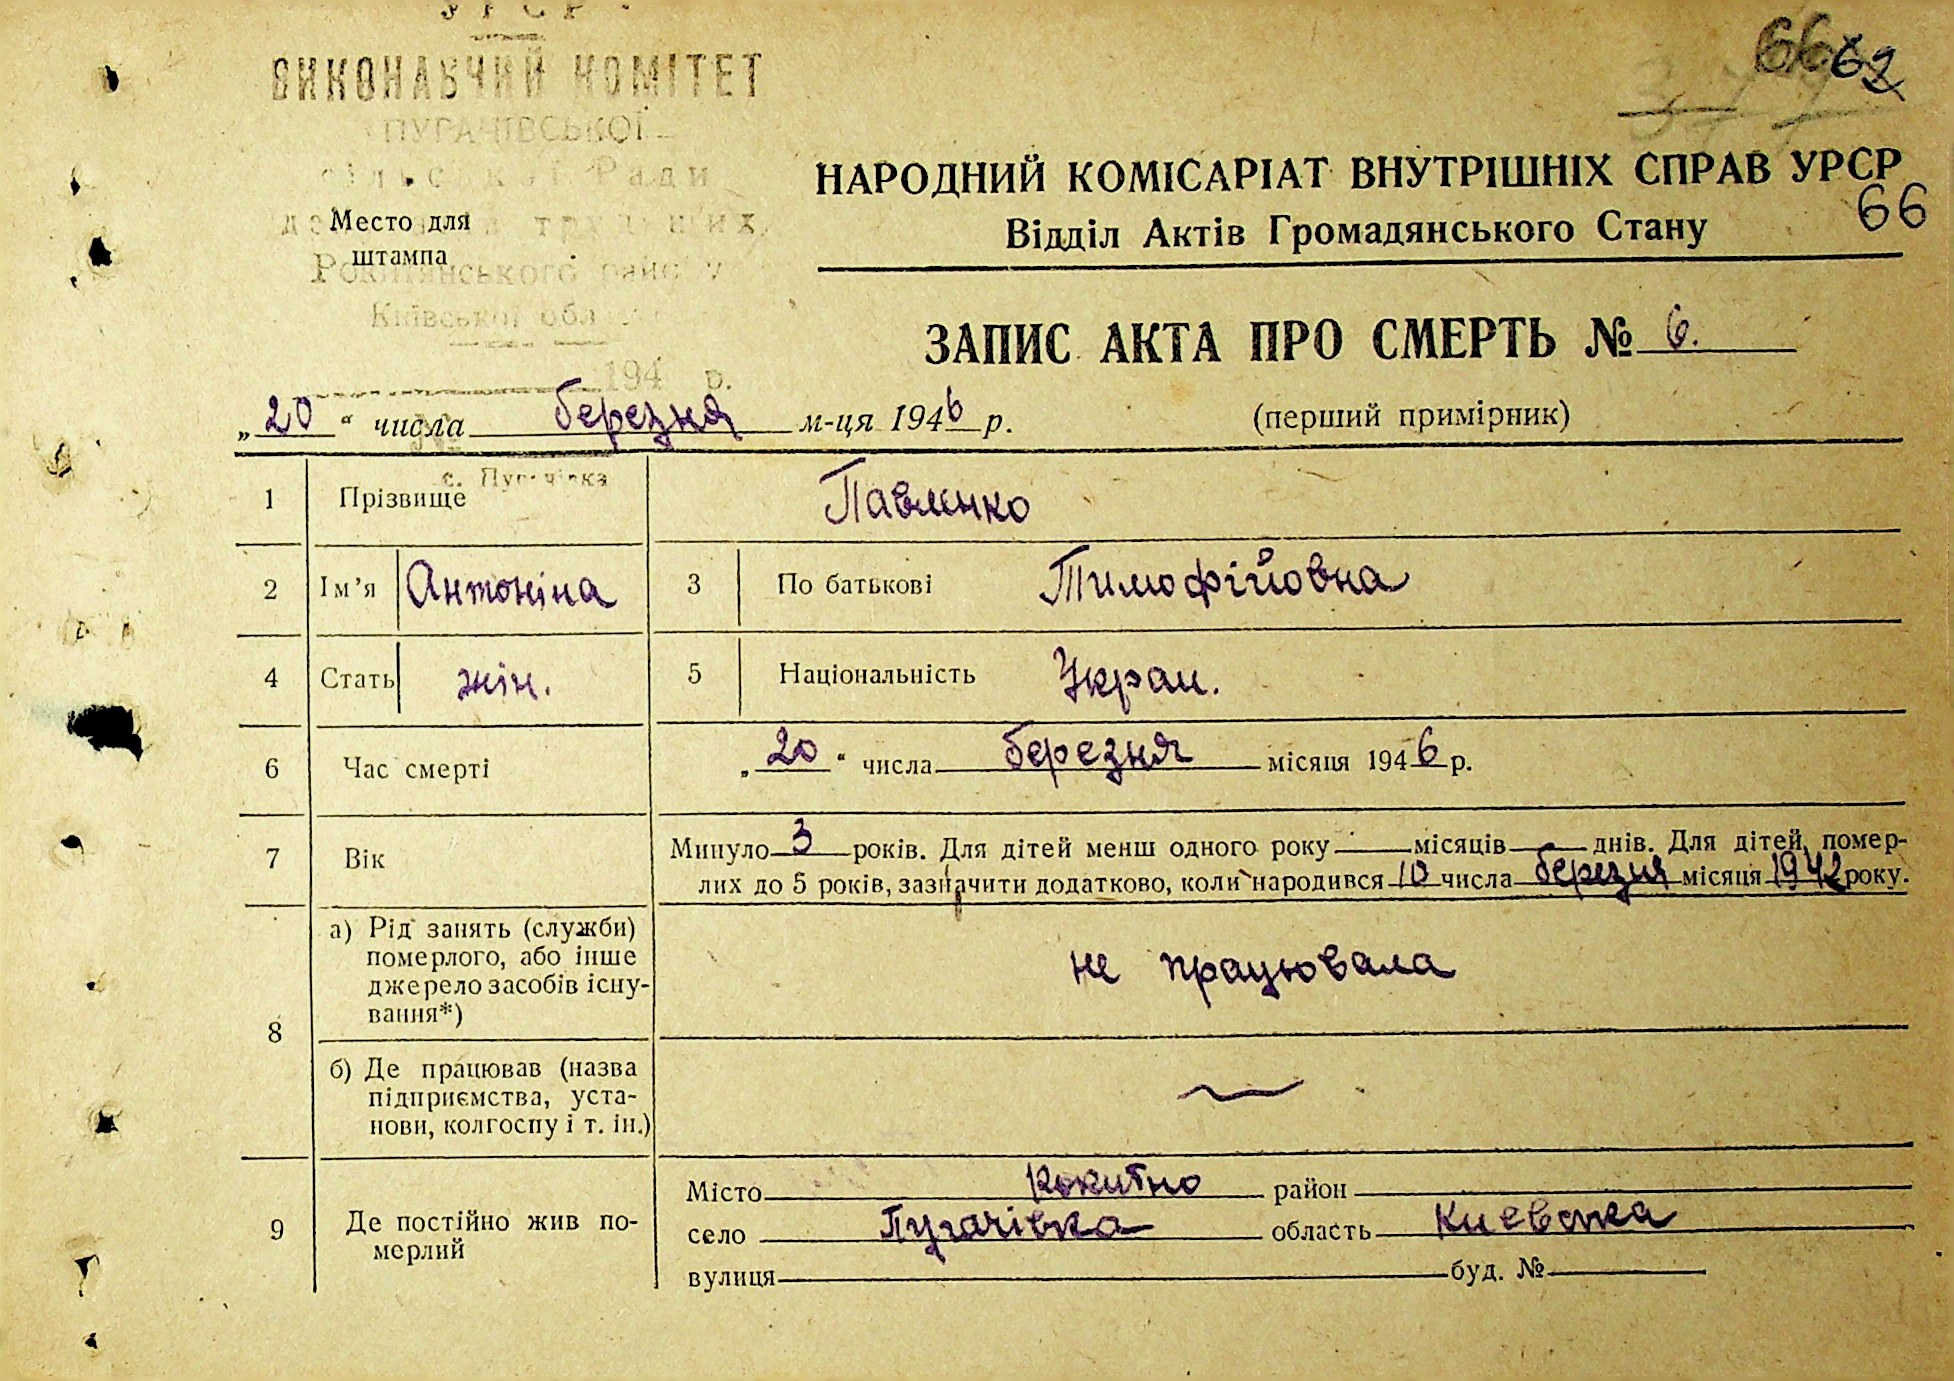 УРСР
ВИКОНАВЧИЙ КОМІТЕТ
ПУГАЧІВСЬКОЇ
сільської Ради
трудящих
Рокитнянського району
Київської обл
194 р.
№
с. Пугачівка
Место для
штампа
62
66
НАРОДНИЙ КОМІСАРІАТ ВНУТРІШНІХ СПРАВ УРСР
Відділ Актів Громадянського Стану
ЗАПИС АКТА ПРО СМЕРТЬ № 6.
„20“ числа березня м-ця 1946 р.
(перший примірник)
1 Прізвище Павленко
2 Ім’я Антоніна 3 По батькові Тимофійовна
4 Стать жін. 5 Національність Украи.
6 Час смерті „20“ числа березня місяця 1946 р.
7 Вік Минуло 3 років. Для дітей менш одного року — місяців — днів. Для дітей, помер-
лих до 5 років, зазначити додатково, коли народився 10 числа березня місяця 1942 року.
8 а) Рід занять (служби)
померлого, або інше
джерело засобів існу-
вання*)
не працювала
б) Де працював (назва
підприємства, уста-
нови, колгоспу і т. ін.)
9 Де постійно жив по-
мерлий
Місто Рокитно район
село Пугачівка область Киевська
вулиця буд. №